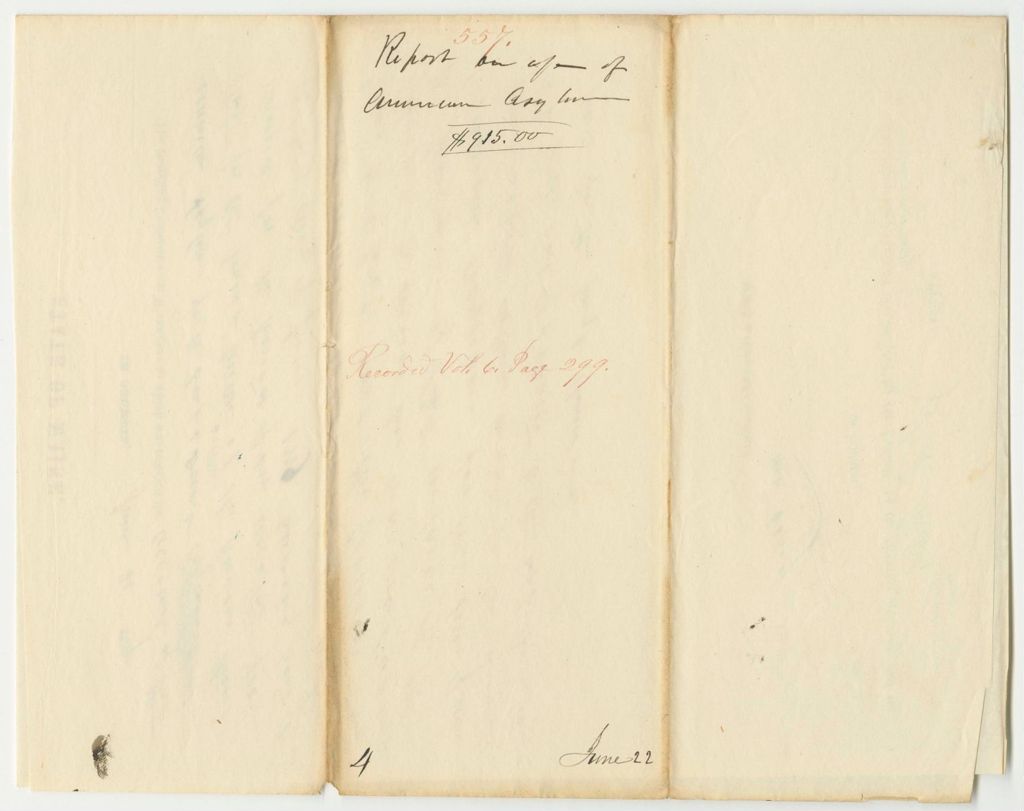 557.
Report on a/c of
American Asylum
$915.00
Recorded Vol. 6. Page 299.
4
June 22